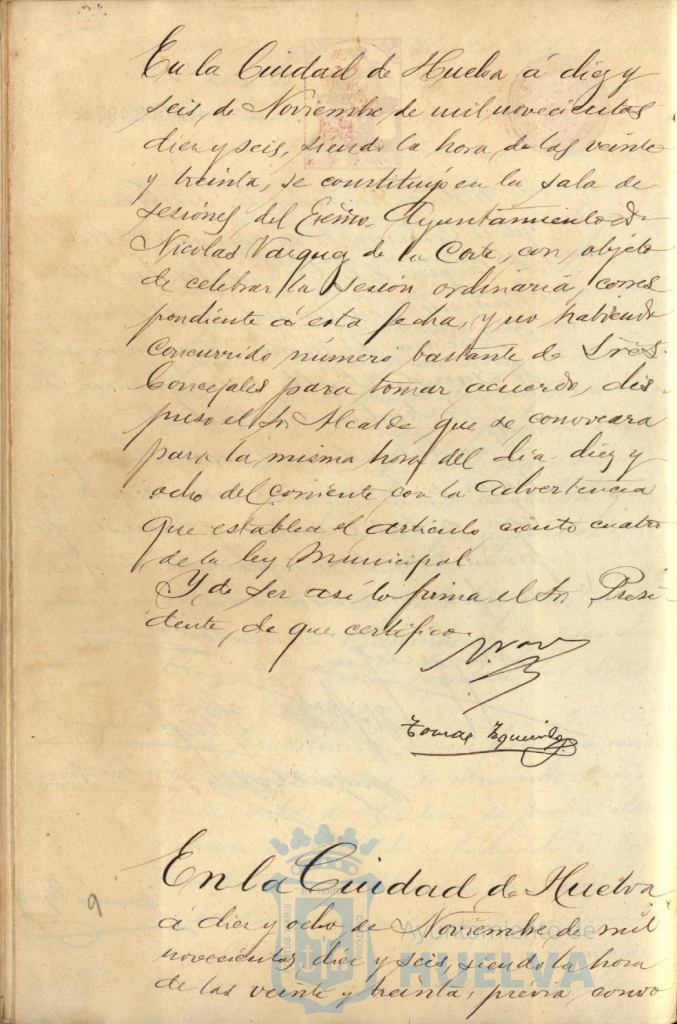 En la Ciudad de Huelva á diez y
seis, de Noviembre, de mil novecientos
diez y seis, siendo la hora de las veinte
y treinta, se constituyó en la sala de
sesiones del Exmo. Ayuntamiento dn
Nicolás Vazquez de la Corte, con objeto
de celebrar la sesión ordinaria, corres
pondiente á esta fecha, y no habiendo
concurrido número bastante de Sres.
Concejales para tomar acuerdo, dis
puso el Sr. Alcalde que se convocara
para la misma hora del dia diez y
ocho del corriente con la advertencia
que establece el artículo ciento cuatro
de la ley Municipal.
Y de ser así lo firma el Sr. Presi-
dente, de que certifico.
Tomas Izquierdo
En la Ciudad de Huelva
á diez y ocho de Noviembre, de mil
novecientos diez y seis, siendo la hora
de las veinte y treinta, previa convo
9
Ayuntamiento de
HUELVA